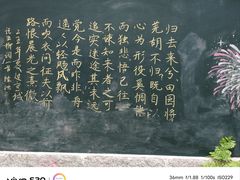 归去来兮田园将
芜胡不归既自以
心为形役奚惆怅
而独悲悟已往
不谏知来者之可
追实迷途其未远
觉今是而昨非舟
遥遥以轻飏风飘
而吹衣问征夫以前
路恨晨光之熹微
36mm f/1.88 1/100s ISO229